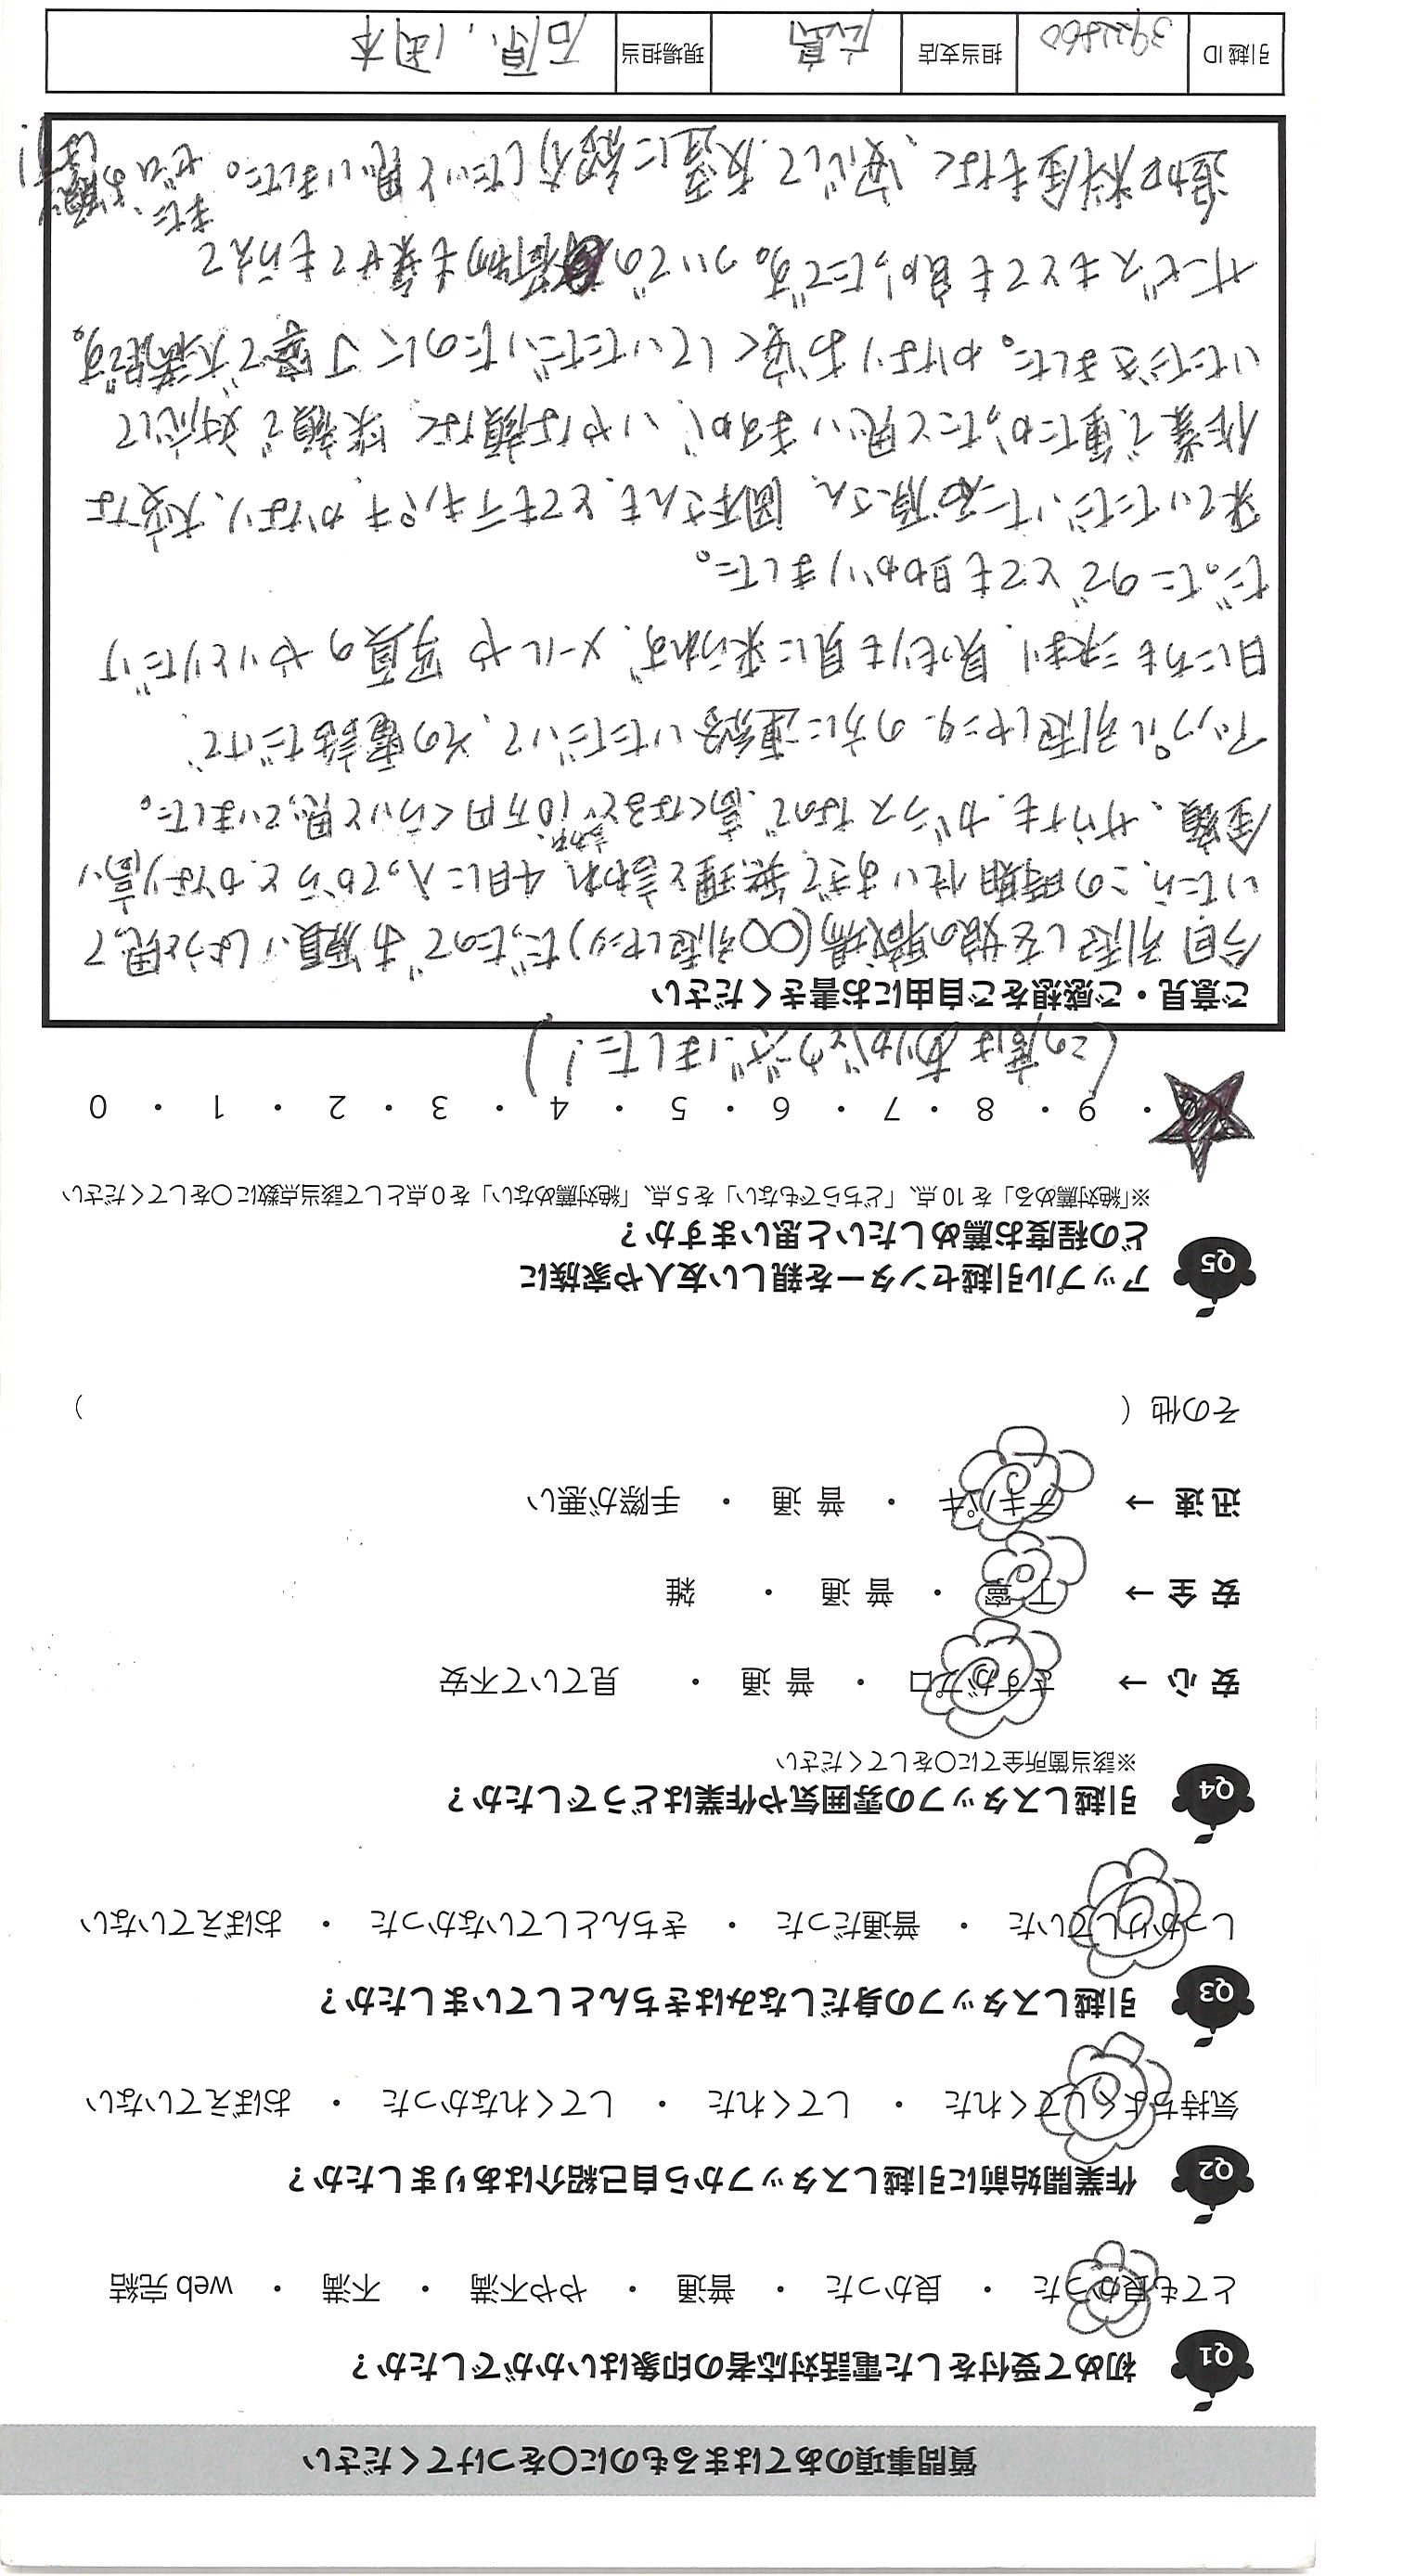 質問事項のあてはまるものに〇をつけてください
Q1 初めて受付をした電話対応者の印象はいかがでしたか？
とても良かった ・ 良かった ・ 普通 ・ やや不満 ・ 不満 ・ web 完結
Q2 作業開始前に引越しスタッフから自己紹介はありましたか？
気持ちよくしてくれた ・ してくれた ・ してくれなかった ・ おぼえていない
Q3 引越しスタッフの身だしなみはきちんとしていましたか？
しっかりしていた ・ 普通だった ・ きちんとしていなかった ・ おぼえていない
Q4 引越しスタッフの雰囲気や作業はどうでしたか？
※該当箇所全てに〇をしてください
安心 → さすがプロ ・ 普通 ・ 見ていて不安
安全 → 丁寧 ・ 普通 ・ 雑
迅速 → テキパキ ・ 普通 ・ 手際が悪い
その他（ ）
Q5 アップル引越センターを親しい友人や家族に
どの程度お薦めしたいと思いますか？
※「絶対薦める」を 10 点、「どちらでもない」を 5 点、「絶対薦めない」を 0 点として該当点数に〇をしてください
・ 9 ・ 8 ・ 7 ・ 6 ・ 5 ・ 4 ・ 3 ・ 2 ・ 1 ・ 0
(この度はありがとうございました！)
ご意見・ご感想をご自由にお書きください
今回引越しを娘の職場(〇〇引越しセンター)だったのでお願いしようと思って
いたら、この時期忙しいすぎて無理と言われ、4月に入ってからとかなり高い
金額、サカイも、ガラスなので、高くなると言われ、10万円くらいと思っていました。
アップル引越しセンターの方に連絡いただいて、その電話だけで、
日にちも決まり、見積りも見に来られず、メールや写真のやりとりだけ
だったのでとても助かりました。
来ていただいた石原さん、岡本さんも、とてもテキパキ、かなり、大変な
作業で重たかったと思いますが、いやな顔なく笑顔で対応して
いただきました。かなりお安くしていただいたのに丁寧で大満足です。
サービスもとても良かったです。ついでの荷物も乗せてもらえて
追加料金もなく、安心して友達に紹介したいと思いました。ぜひ
また、お願いします！
引越 ID 担当支店 広島 現場担当 石原、岡本